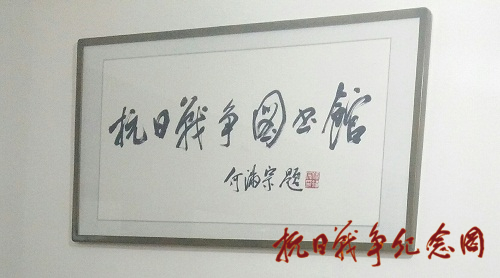 抗日戰争图书館
何满宗題
抗日战争纪念网